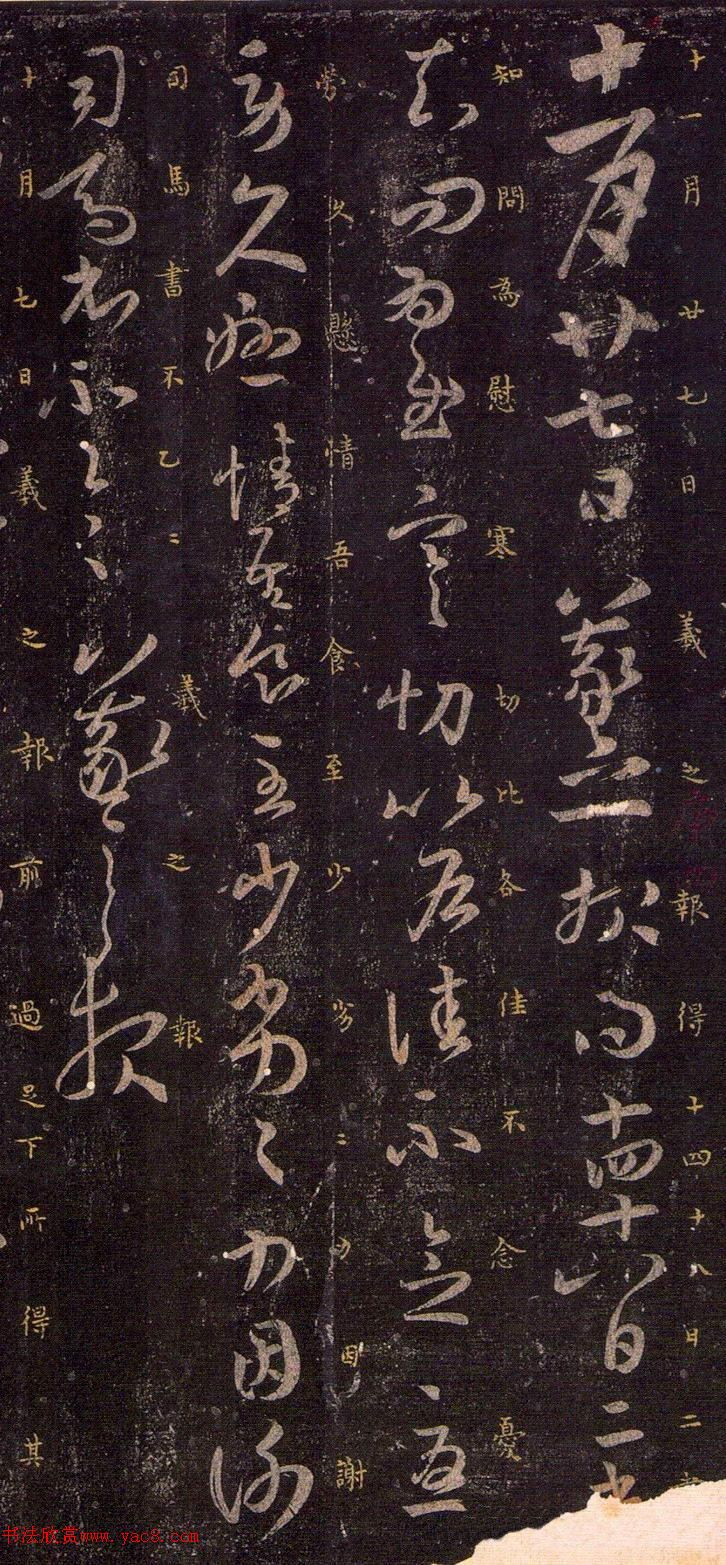 十一月廿七日羲之報得十四十八日二
十一月廿七日羲之報得十四十八日二
知問為慰寒切比各佳不念憂
知問為慰寒切比各佳不念憂
勞久懸情吾食至少劣〻力因謝
勞久懸情吾食至少劣〻力因謝
司馬書不乙〻羲之報
司馬書不〻〻羲之報
十月七日羲之報前過足下所得其
书法欣赏www.yac8.com